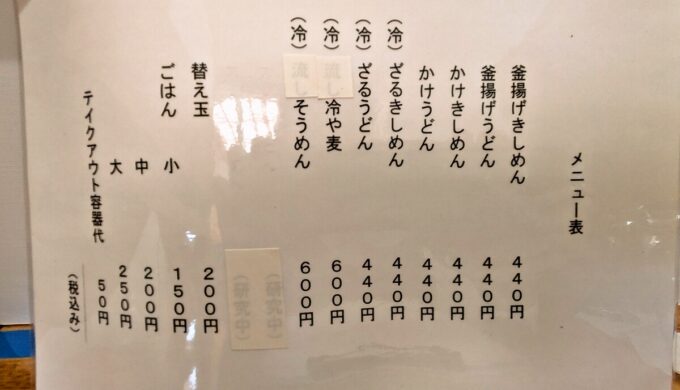 メニュー表
釜揚げきしめん 440円
釜揚げうどん 440円
かけきしめん 440円
かけうどん 440円
(冷) ざるきしめん 440円
(冷) ざるうどん 440円
(冷) 流し冷や麦 600円
(冷) 流しそうめん 600円
(研究中)
(研究中)
替え玉 200円
ごはん 小 150円
中 200円
大 250円
テイクアウト容器代 50円
(税込み)